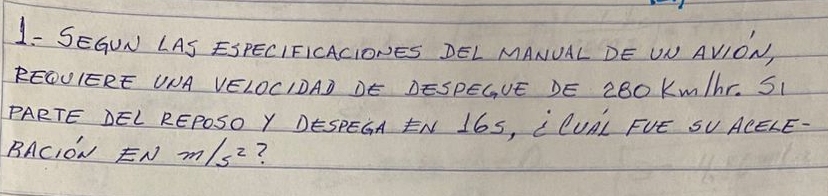 1.- SEGUN LAS ESPECIFICACIONES DEL MANUAL DE UN AVIÓN,
REQUIERE UNA VELOCIDAD DE DESPEGUE DE 280 Km/hr. SI
PARTE DEL REPOSO Y DESPEGA EN 16s, ¿CUÁL FUE SU ACELE-
RACIÓN EN m/s²?